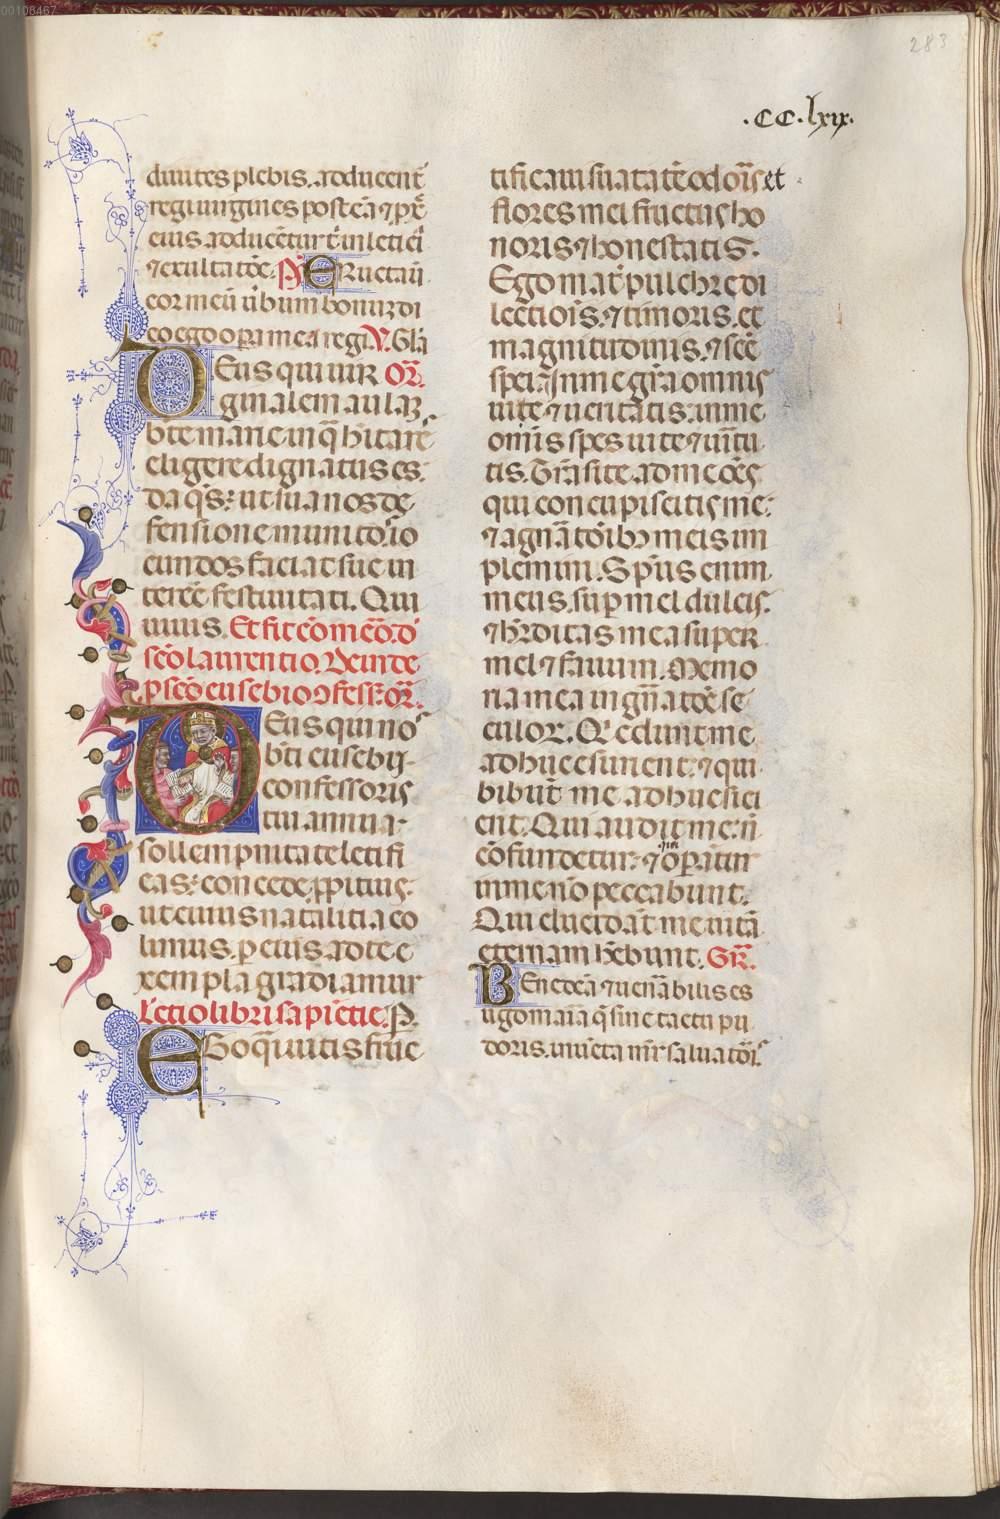 00108467
283
.CC.lxix.
diuites plebis. adducent̄
regi uirgines post eā ⁊ p̱x̄e
eius adducētur t̄ in leticī
⁊ exultatōe. P̄s Eructauī
cor meū ūbum bonuʒ di
co ego oꝑa mea regi. V. Gl̄a
Deus qui uir Or̄.
ginalem aulaʒ
bt̄e marie in q̄ h̄itare
eligere dignatus es.
da q̄s: ut sua nos de
fensione munitos io
cundos faciat sue in
teree festiuitati. Qui
uiuis. Et fit cōmēo. d̄
scō laurentio. Deinde
p scō eusebio ꝯfess. or̄.
Deus qui nos
bt̄i eusebij
confessoris
tui annua
sollempnitate letifi
cas: concede ꝓpitius.
ut cuius natalitia co
limus. p eius ad te e
xempla gradiamur
Lectio libri sapiētie. P.
Ego q̄i uitis fruc
tificaui suauitatē odoris et
flores mei fructus ho
noris ⁊ honestatis.
Ego mat̄ pulchre di
lectiōis. ⁊ timoris. et
magnitudinis. ⁊ scē
spei. In me gr̄a omnis
uite ⁊ ueritatis. in me
om̄is spes uite ⁊ uirtu
tis. Trāsite ad me om̄s
qui concupiscitis me:
⁊ a gn̄atōibꝰ meis im
plemini. Sp̄us enim
meus. suꝑ mel dulcis.
⁊ hr̄ditas mea super
mel ⁊ fauum. Memo
ria mea in gn̄atōe se
culoꝝ. Qi edunt me
adhuc esurient: ⁊ qui
bibūt me adhuc siti
ent. Qui audit me: n̄
cōfundetur: ⁊ qui oꝑātur
in me nō peccabunt.
Qui elucidāt me uitā
eternam h̄ebunt. Gr̄.
Benedcā ⁊ uen̄abilis es
uirgo maria q̄ sine tactu pu
doris. inuēta mr̄ saluatōis.